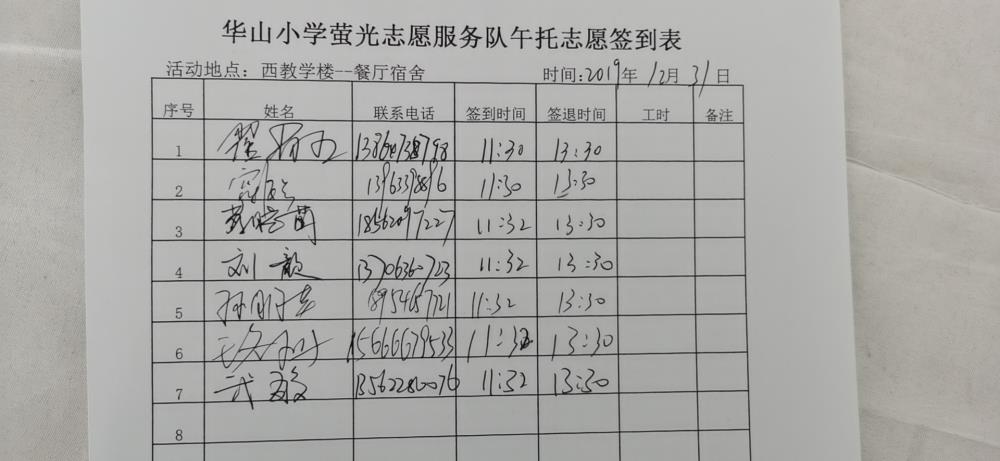 华山小学萤光志愿服务队午托志愿签到表
活动地点：西教学楼--餐厅宿舍 时间:2019年12月31日
序号 姓名 联系电话 签到时间 签退时间 工时 备注
1 11:30 13:30
2 11:30 13:30
3 18562097227 11:32 13:30
4 刘毅 13706360723 11:32 13:30
5 11:32 13:30
6 15666679533 11:32 13:30
7 武敏 13562280076 11:32 13:30
8